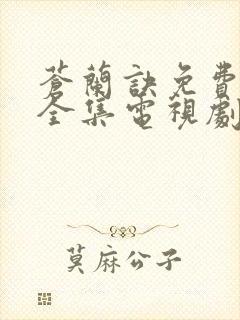 蒼蘭訣免費
全集電視劇
莫麻公子